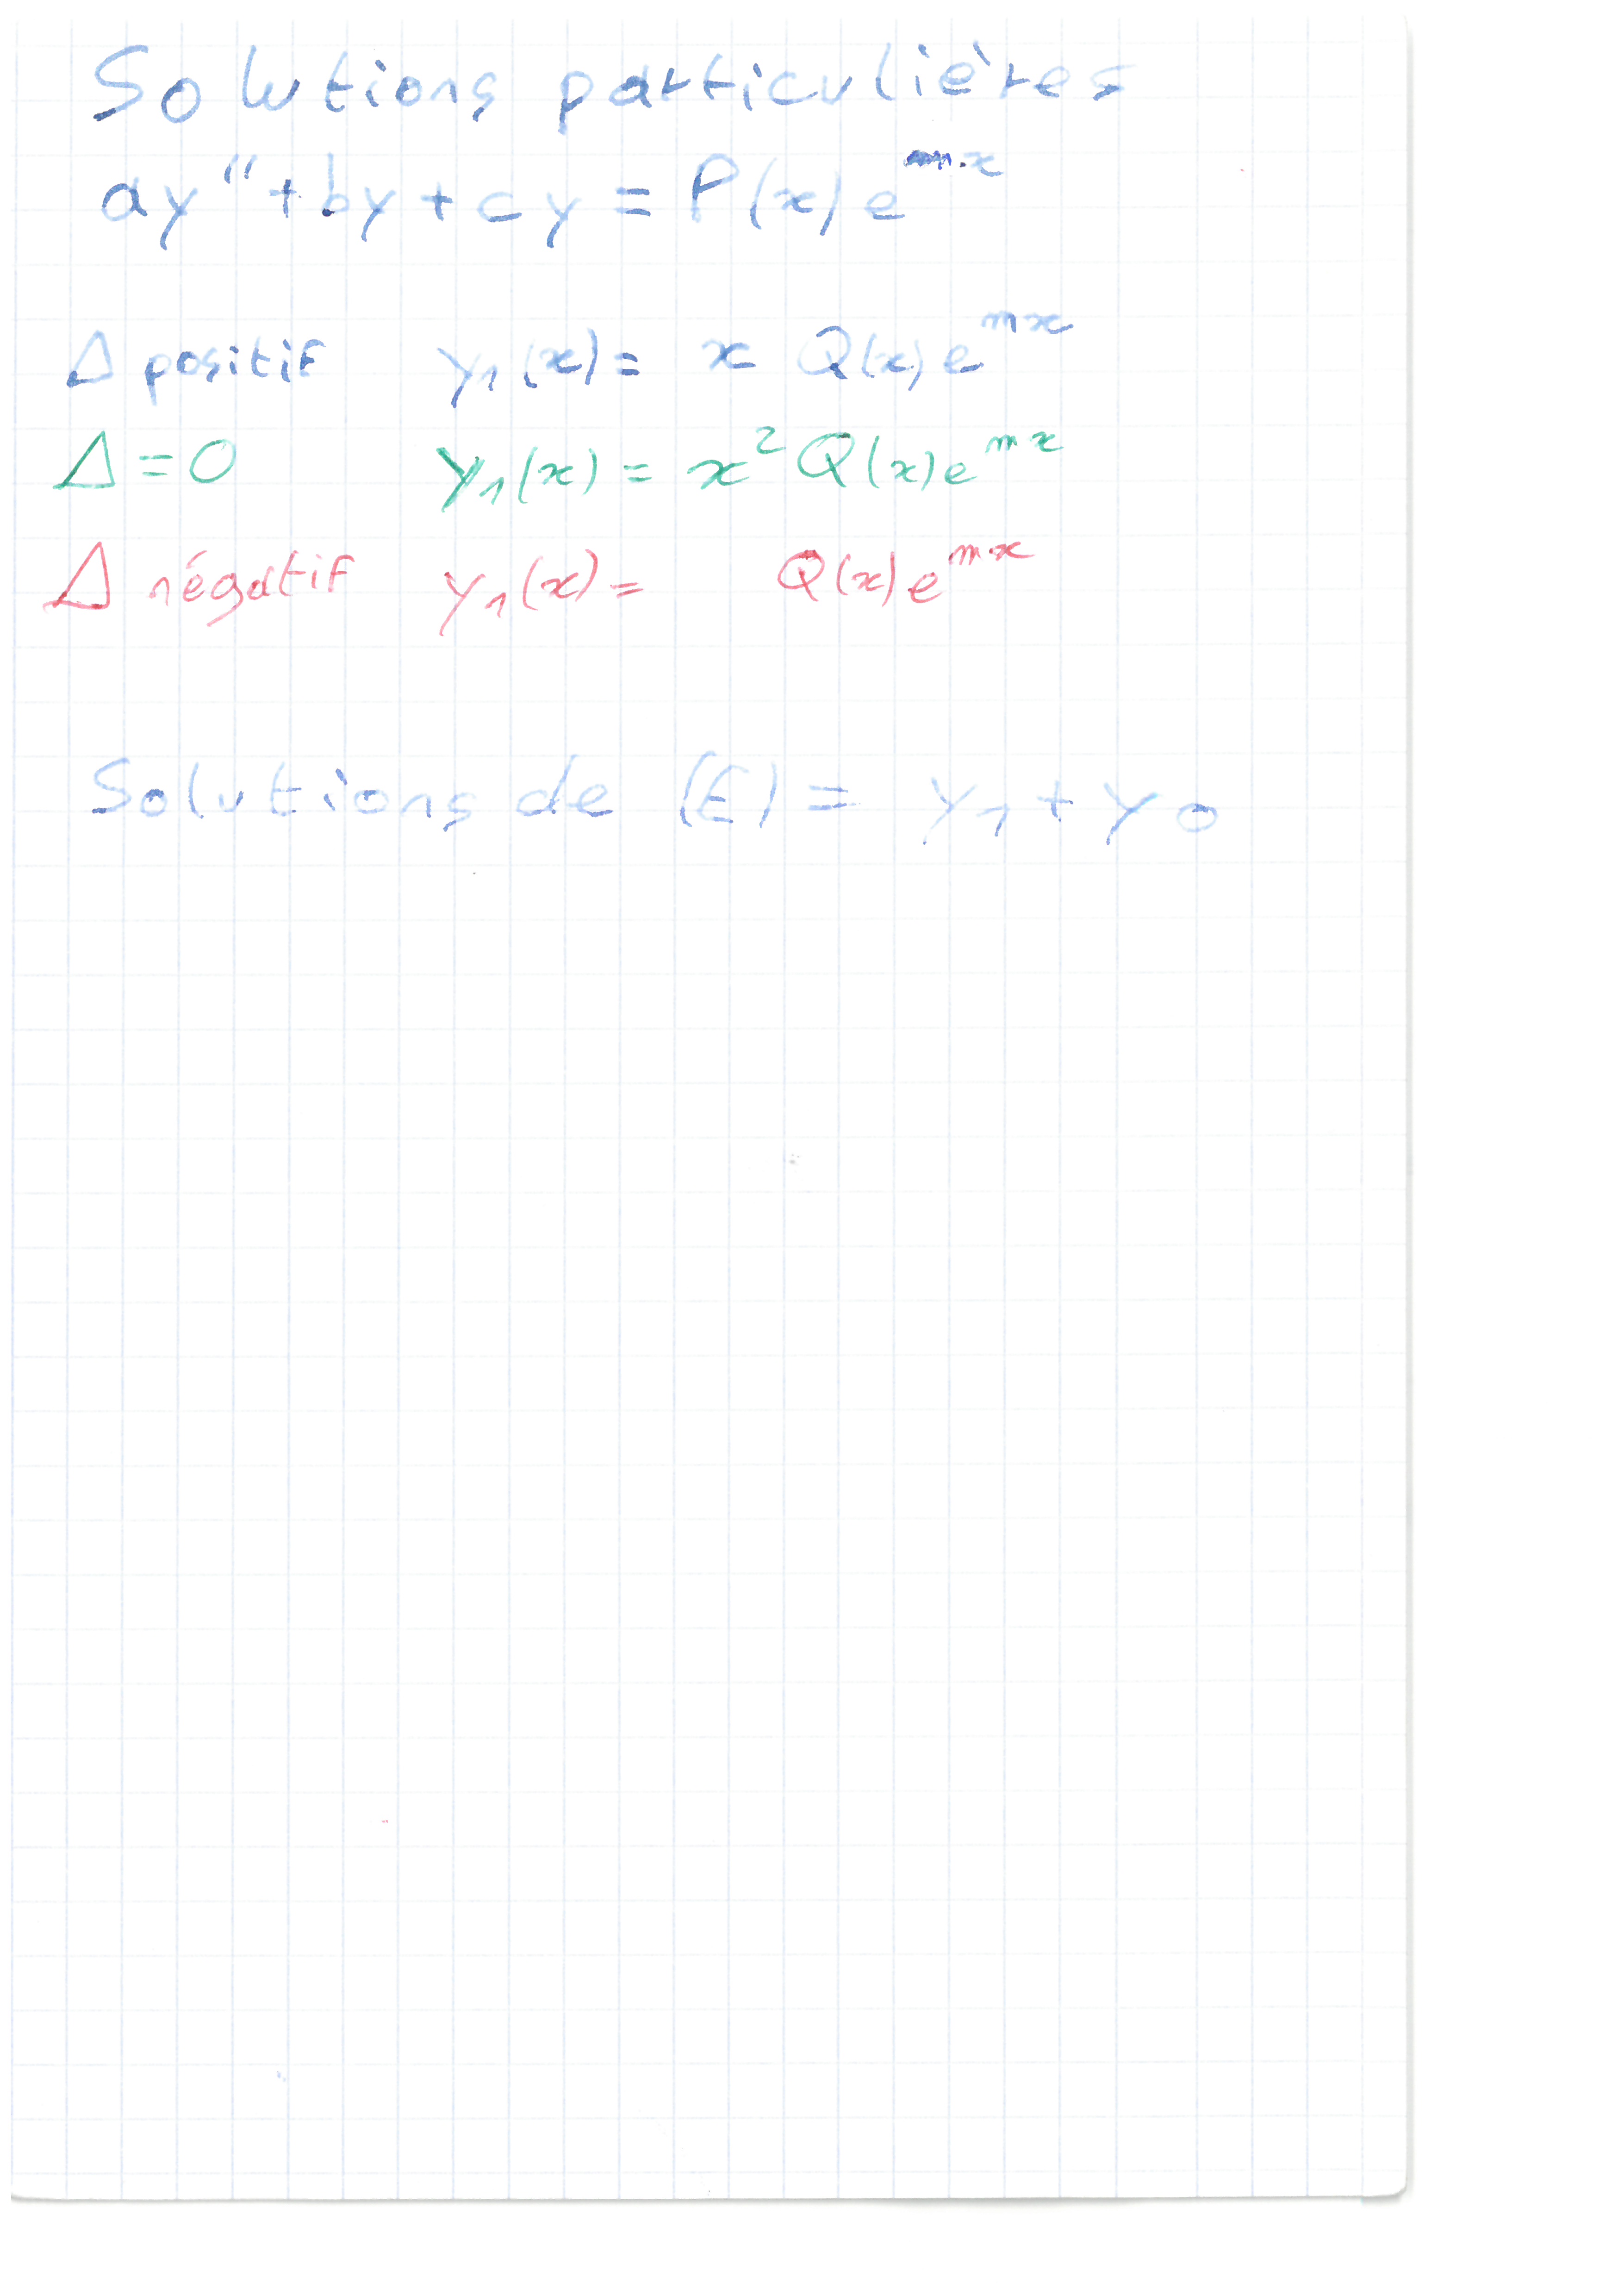 Solutions particulières
ay" + by + cy = P(x) e^{m x}
Δ positif y₁(x) = x Q(x) e^{mx}
Δ = 0 y₁(x) = x² Q(x) e^{mx}
Δ négatif y₁(x) = Q(x) e^{mx}
Solutions de (E) = y₁ + y₀